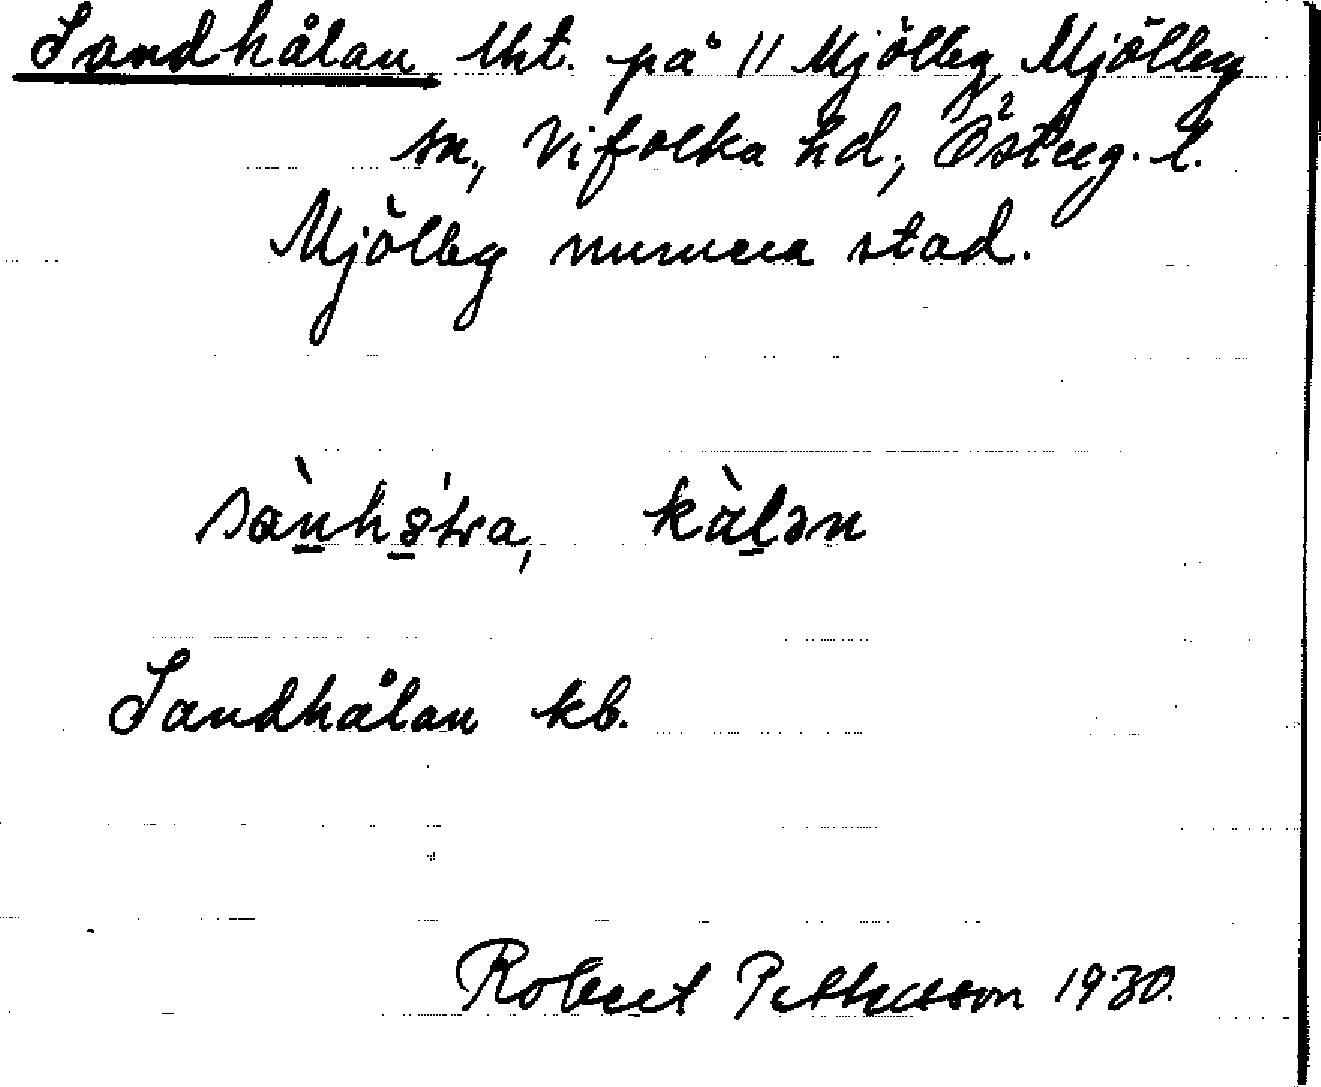 Sandhålan lht. på 11 Mjölby, Mjölby
sn, Vifolka hd, Österg. l.
Mjölby numera stad.
sànhǫ́lra, kàḷən
Sandhålan kb.
Robert Pettersson 1930.